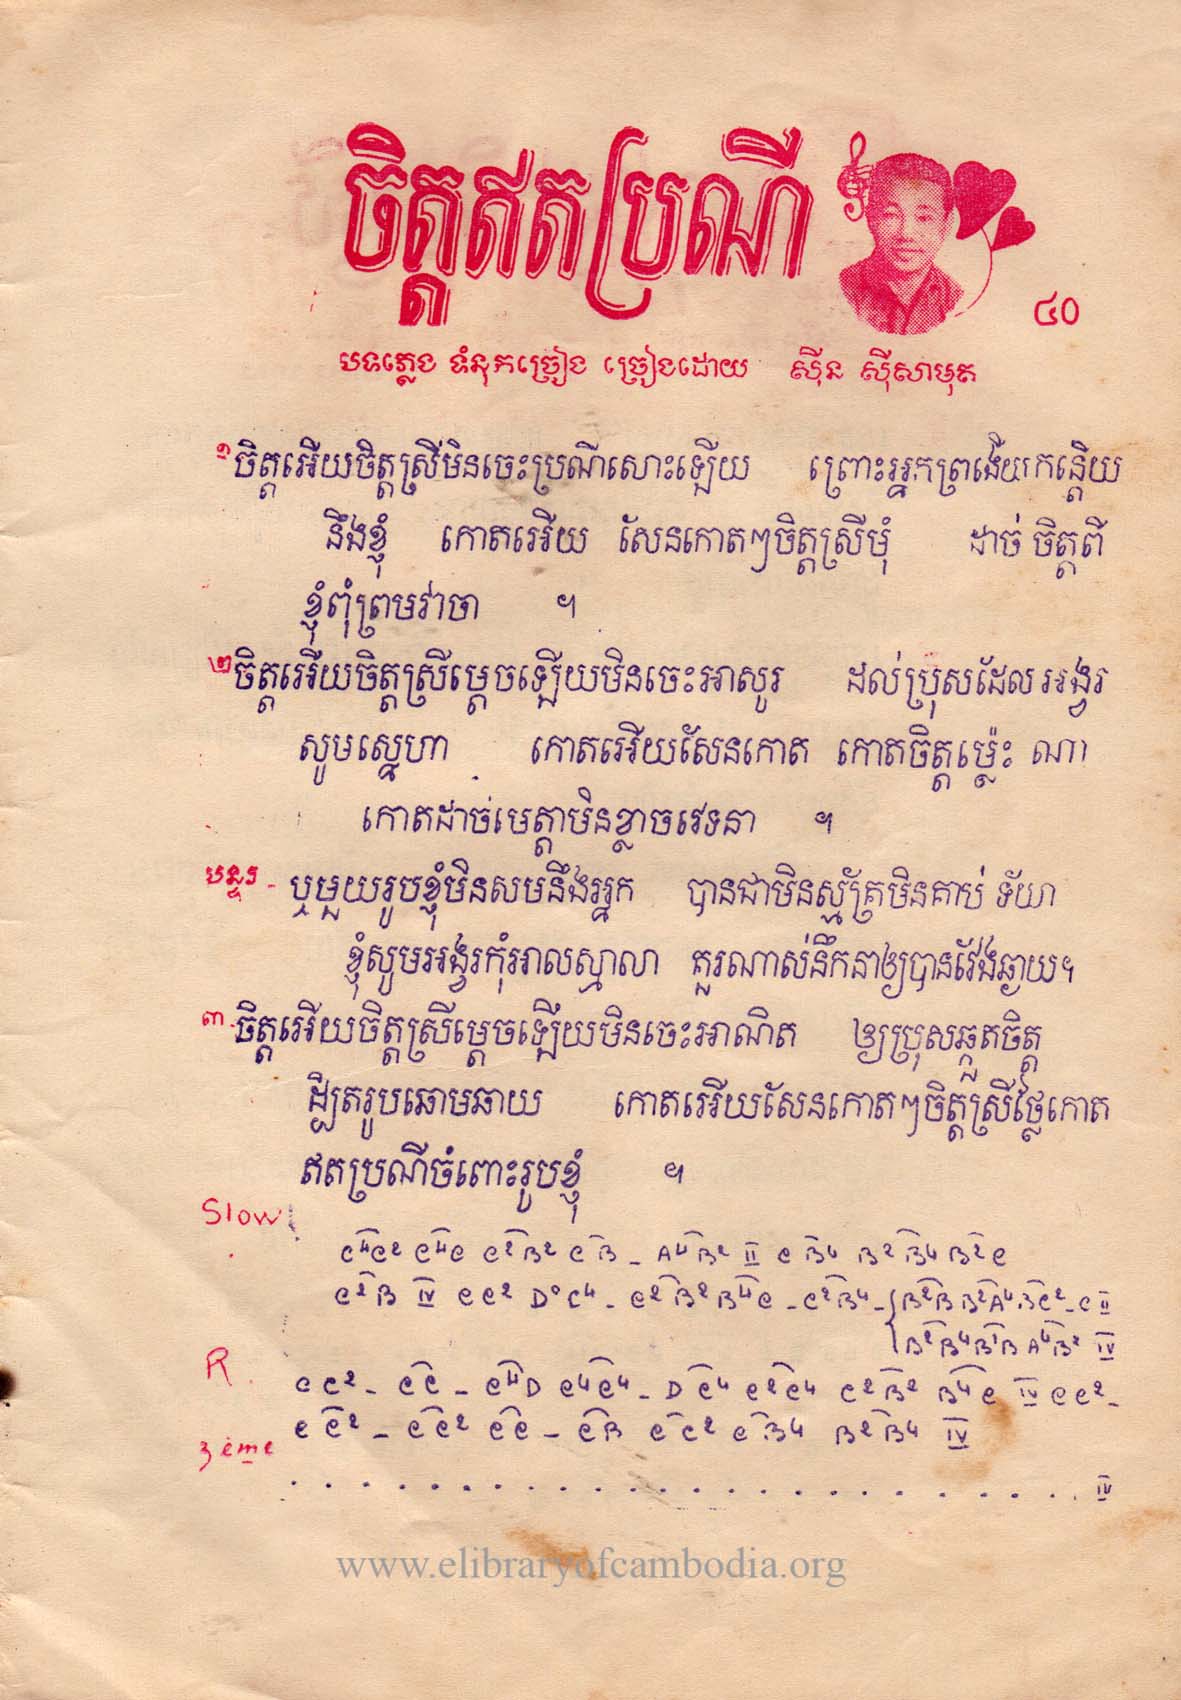 ចិត្តឥតប្រណី
៤០
បទភ្លេង ទំនុកច្រៀង ច្រៀងដោយ ស៊ីន ស៊ីសាមុត
១ ចិត្តអើយចិត្តស្រីមិនចេះប្រណីសោះឡើយ ព្រោះអ្នកព្រងើយកន្តើយ
នឹងខ្ញុំ កោតអើយ សែនកោតៗចិត្តស្រីមុំ ដាច់ ចិត្តពី
ខ្ញុំពុំព្រមវាចា ។
២ ចិត្តអើយចិត្តស្រីម្តេចឡើយមិនចេះអាសូរ ដល់ប្រុសដែល អង្វរ
សូមស្នេហា កោតអើយសែនកោត កោតចិត្តម្ល៉េះ ណា
កោតដាច់មេត្តាមិនខ្លាចវេទនា ។
បន្ទរ - ឬមួយរូបខ្ញុំមិនសមនឹងអ្នក បានជាមិនស្ម័គ្រមិនគាប់ ទ័យា
ខ្ញុំសូមអង្វរកុំអាលស្មាលា គួរណាស់នឹកនាឲ្យបានវែងឆ្ងាយ។
៣ - ចិត្តអើយចិត្តស្រីម្តេចឡើយមិនចេះអាណិត ឲ្យប្រុសឆ្កួតចិត្ត
ដ្បិតរូបឆោមឆាយ កោតអើយសែនកោតៗចិត្តស្រីថ្លៃកោត
ឥតប្រណីចំពោះរូបខ្ញុំ ។
Slow
R
3ème
www.elibraryofcambodia.org